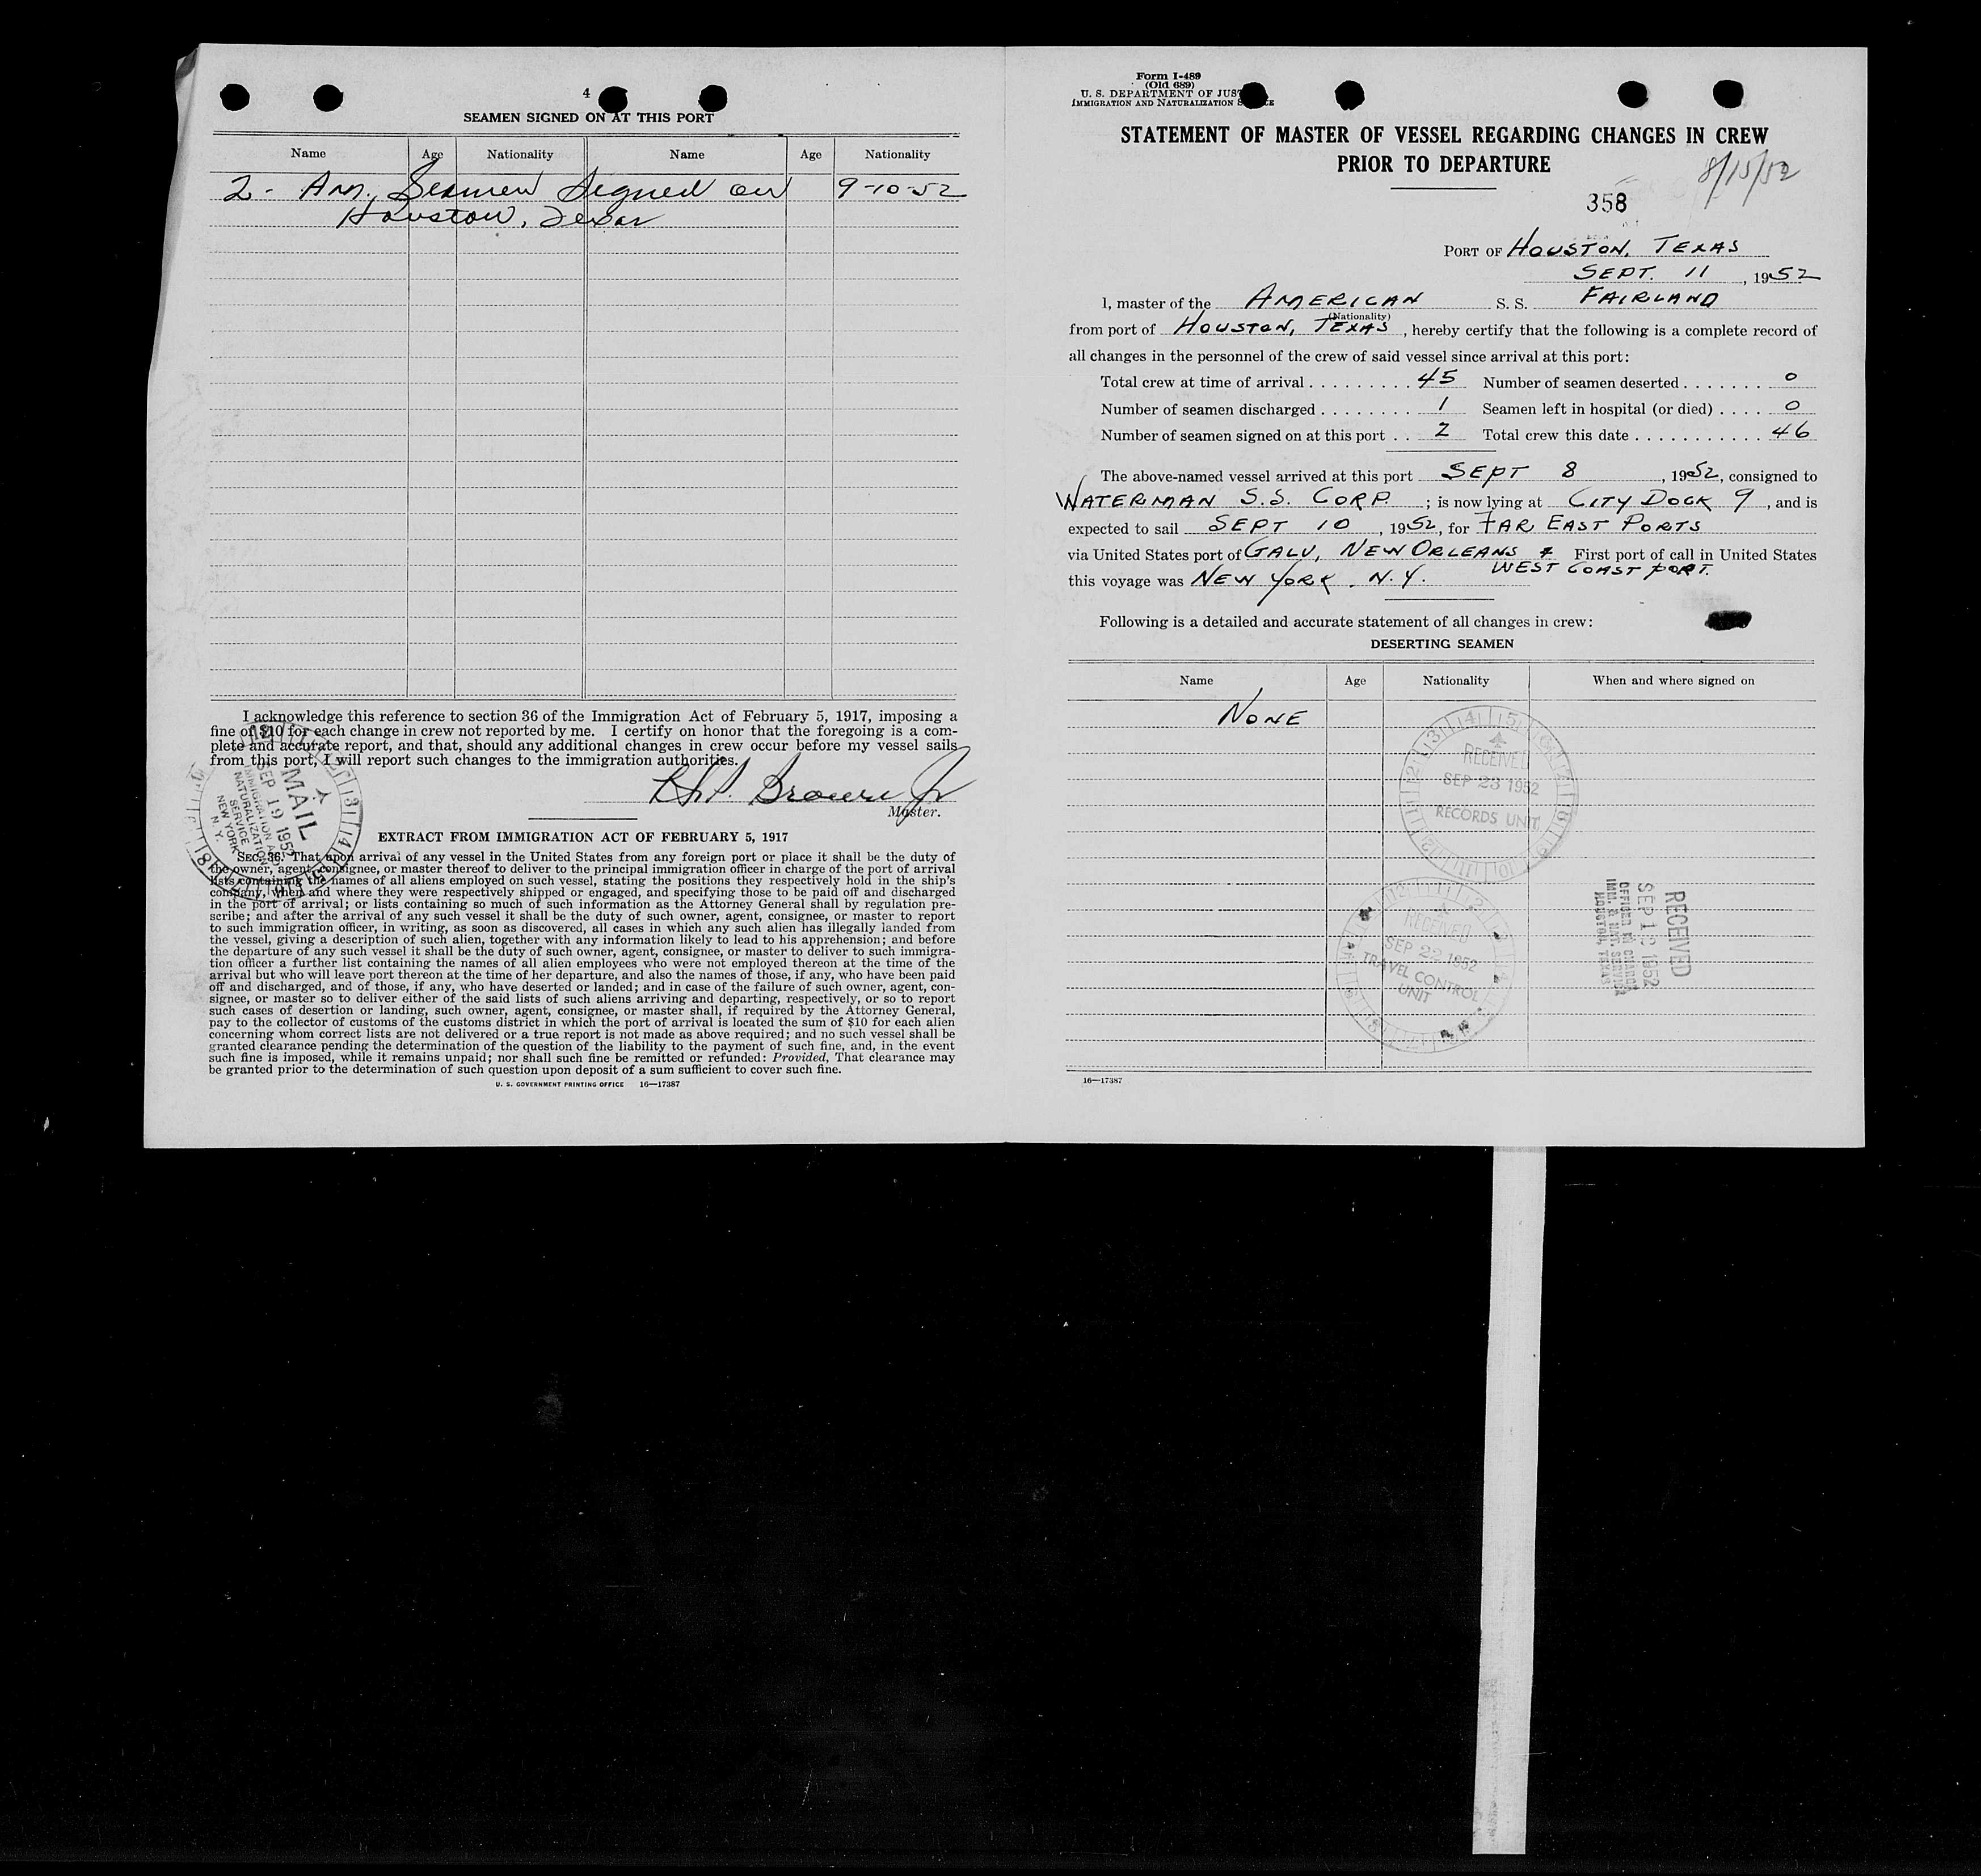 4
SEAMEN SIGNED ON AT THIS PORT
Name Age Nationality Name Age Nationality
2 - Am. Seamen Signed on 9-10-52
Houston, Texas
I acknowledge this reference to section 36 of the Immigration Act of February 5, 1917, imposing a
fine of $10 for each change in crew not reported by me. I certify on honor that the foregoing is a com-
plete and accurate report, and that, should any additional changes in crew occur before my vessel sails
from this port, I will report such changes to the immigration authorities.
Brown Jr
Master.
MAIL
SEP 19 1952
IMMIGRATION AND
NATURALIZATION
SERVICE
NEW YORK
N. Y.
EXTRACT FROM IMMIGRATION ACT OF FEBRUARY 5, 1917
SEC. 36. That upon arrival of any vessel in the United States from any foreign port or place it shall be the duty of
the owner, agent, consignee, or master thereof to deliver to the principal immigration officer in charge of the port of arrival
lists containing the names of all aliens employed on such vessel, stating the positions they respectively hold in the ship's
company, when and where they were respectively shipped or engaged, and specifying those to be paid off and discharged
in the port of arrival; or lists containing so much of such information as the Attorney General shall by regulation pre-
scribe; and after the arrival of any such vessel it shall be the duty of such owner, agent, consignee, or master to report
to such immigration officer, in writing, as soon as discovered, all cases in which any such alien has illegally landed from
the vessel, giving a description of such alien, together with any information likely to lead to his apprehension; and before
the departure of any such vessel it shall be the duty of such owner, agent, consignee, or master to deliver to such immigra-
tion officer a further list containing the names of all alien employees who were not employed thereon at the time of the
arrival but who will leave port thereon at the time of her departure, and also the names of those, if any, who have been paid
off and discharged, and of those, if any, who have deserted or landed; and in case of the failure of such owner, agent, con-
signee, or master so to deliver either of the said lists of such aliens arriving and departing, respectively, or so to report
such cases of desertion or landing, such owner, agent, consignee, or master shall, if required by the Attorney General,
pay to the collector of customs of the customs district in which the port of arrival is located the sum of $10 for each alien
concerning whom correct lists are not delivered or a true report is not made as above required; and no such vessel shall be
granted clearance pending the determination of the question of the liability to the payment of such fine, and, in the event
such fine is imposed, while it remains unpaid; nor shall such fine be remitted or refunded: Provided, That clearance may
be granted prior to the determination of such question upon deposit of a sum sufficient to cover such fine.
U. S. GOVERNMENT PRINTING OFFICE 16—17387
Form I-489
(Old 689)
U. S. DEPARTMENT OF JUST
IMMIGRATION AND NATURALIZATION S CE
STATEMENT OF MASTER OF VESSEL REGARDING CHANGES IN CREW
PRIOR TO DEPARTURE
8/15/52
358
PORT OF HOUSTON, TEXAS
SEPT. 11, 1952
I, master of the AMERICAN S. S. FAIRLAND
(Nationality)
from port of HOUSTON, TEXAS, hereby certify that the following is a complete record of
all changes in the personnel of the crew of said vessel since arrival at this port:
Total crew at time of arrival . . . . . . . . . 45 Number of seamen deserted . . . . . . . 0
Number of seamen discharged . . . . . . . . 1 Seamen left in hospital (or died) . . . . 0
Number of seamen signed on at this port . . 2 Total crew this date . . . . . . . . . . . 46
The above-named vessel arrived at this port SEPT 8, 1952, consigned to
WATERMAN S.S. CORP.; is now lying at CITY DOCK 9, and is
expected to sail SEPT 10, 1952, for FAR EAST PORTS
via United States port of GALV, NEW ORLEANS & First port of call in United States
WEST COAST PORT.
this voyage was NEW YORK, N.Y.
Following is a detailed and accurate statement of all changes in crew:
DESERTING SEAMEN
Name Age Nationality When and where signed on
NONE
RECEIVED
SEP 23 1952
RECORDS UNIT
RECEIVED
SEP 22 1952
TRAVEL CONTROL
UNIT
RECEIVED
SEP 12 1952
OFFICER IN CHARGE
IMM. & NAT. SERVICE
HOUSTON, TEXAS
16—17387